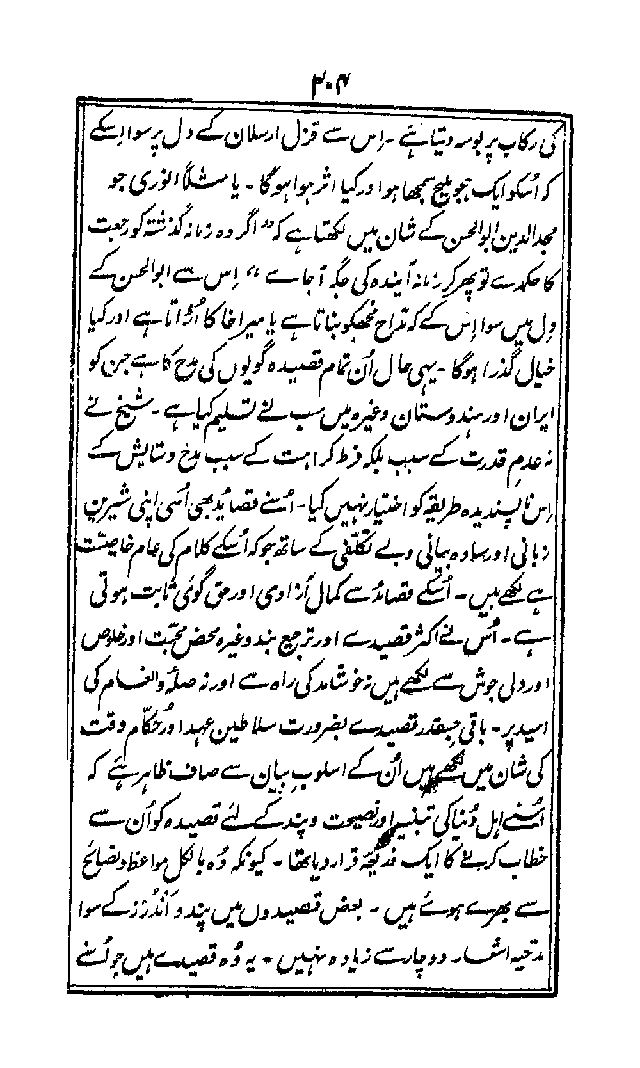 ۲۰۴
کی رکاب پر بوسہ دیتا ہے ۔ اِس سے قزل ارسلان کے دل پر سوا اِسکے
کہ اُسکو ایک ہجو ملیح سمجھا ہو اور کیا اثر ہوا ہوگا ۔ یا مثلًا انوری جو
مجد الدین ابوالحسن کے شان میں لکھتا ہے کہ ”اگر وہ زمانہ گذشتہ کو رجعت
کا حکم دے تو پھر کر زمانہ آیندہ کی جگہ آجاے “ اِس سے ابوالحسن کے
دل میں سوا اِس کے کہ مداح مجھکو بناتا ہے یا میرا خاکا اُڑاتا ہے اور کیا
خیال گذرا ہوگا ۔ یہی حال اُن تمام قصیدہ گویوں کی مدح کا ہے جن کو
ایران اور ہندوستان وغیرہ میں سب نے تسلیم کیا ہے ۔ شیخ نے
نہ عدمِ قدرت کے سبب بلکہ فرط کراہت کے سبب مدح و ستایش کے
اِس ناپسندیدہ طریقہ کو اختیار نہیں کیا ۔ اُسنے قصاید بھی اُسی اپنی شیرین
زبانی اور سادہ بیانی و بے تکلفی کے ساتھ جو کہ اُسکے کلام کی عام خاصیت
ہے لکھے ہیں ۔ اُسکے قصائد سے کمال آزادی اور حق گوئی ثابت ہوتی
ہے ۔ اُس نے اکثر قصیدے اور ترجیع بند وغیرہ محض محبت اور خلوص
اور دلی جوش سے لکھے ہیں نہ خوشامد کی راہ سے اور نہ صلہ و انعام کی
امید پر ۔ باقی جسقدر قصیدے بضرورت سلاطین عہد اور حکّام وقت
کی شان میں لکھے ہیں اُن کے اسلوبِ بیان سے صاف ظاہر ہے کہ
اُسنے اہل دُنیا کی تنبیہ اور نصیحت و پند کے لئے قصیدہ کو اُن سے
خطاب کرنے کا ایک ذریعہ قرار دیا تھا ۔ کیونکہ وُہ بالکل مواعظ و نصایح
سے بھرے ہوئے ہیں ۔ بعض قصیدوں میں پند و اَندُرز کے سوا
مدحیہ اشعار دو چار سے زیادہ نہیں ۔ یہ وُہ قصیدے ہیں جو اُسنے